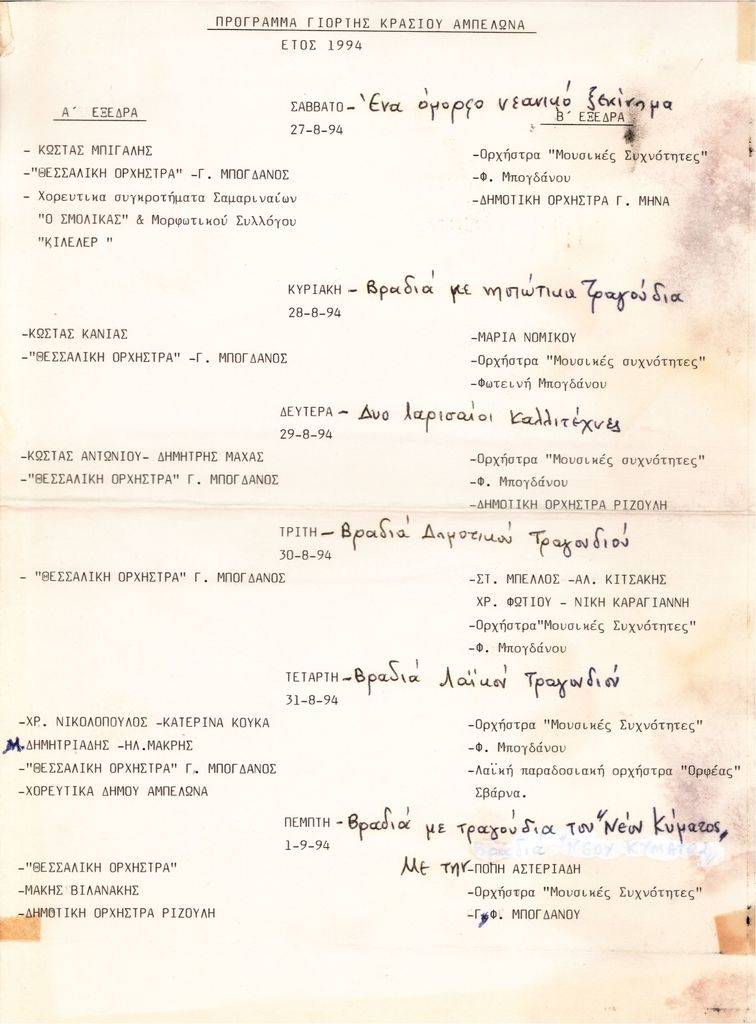 ΠΡΟΓΡΑΜΜΑ ΓΙΟΡΤΗΣ ΚΡΑΣΙΟΥ ΑΜΠΕΛΩΝΑ
ΕΤΟΣ 1994
ΣΑΒΒΑΤΟ - Ένα όμορφο νεανικό ξεκίνημα
Α΄ ΕΞΕΔΡΑ
27-8-94
Β΄ ΕΞΕΔΡΑ
- ΚΩΣΤΑΣ ΜΠΙΓΑΛΗΣ
-"ΘΕΣΣΑΛΙΚΗ ΟΡΧΗΣΤΡΑ" -Γ. ΜΠΟΓΔΑΝΟΣ
- Χορευτικα συγκροτήματα Σαμαριναίων
"Ο ΣΜΟΛΙΚΑΣ" & Μορφωτικού Συλλόγου
"ΚΙΛΕΛΕΡ "
-Ορχήστρα "Μουσικές Συχνότητες"
-Φ. Μπογδάνου
-ΔΗΜΟΤΙΚΗ ΟΡΧΗΣΤΡΑ Γ. ΜΗΝΑ
ΚΥΡΙΑΚΗ - Βραδιά με νησιώτικα Τραγούδια
28-8-94
-ΚΩΣΤΑΣ ΚΑΝΙΑΣ
-"ΘΕΣΣΑΛΙΚΗ ΟΡΧΗΣΤΡΑ" -Γ. ΜΠΟΓΔΑΝΟΣ
-ΜΑΡΙΑ ΝΟΜΙΚΟΥ
-Ορχήστρα "Μουσικές συχνότητες"
-Φωτεινή Μπογδάνου
ΔΕΥΤΕΡΑ - Δυο λαρισαίοι καλλιτέχνες
29-8-94
-ΚΩΣΤΑΣ ΑΝΤΩΝΙΟΥ- ΔΗΜΗΤΡΗΣ ΜΑΧΑΣ
-"ΘΕΣΣΑΛΙΚΗ ΟΡΧΗΣΤΡΑ" Γ. ΜΠΟΓΔΑΝΟΣ
-Ορχήστρα "Μουσικές συχνότητες"
-Φ. Μπογδάνου
-ΔΗΜΟΤΙΚΗ ΟΡΧΗΣΤΡΑ ΡΙΖΟΥΛΗ
ΤΡΙΤΗ - Βραδιά Δημοτικού Τραγουδιού
30-8-94
- "ΘΕΣΣΑΛΙΚΗ ΟΡΧΗΣΤΡΑ" Γ. ΜΠΟΓΔΑΝΟΣ
-ΣΤ. ΜΠΕΛΛΟΣ -ΑΛ. ΚΙΤΣΑΚΗΣ
ΧΡ. ΦΩΤΙΟΥ - ΝΙΚΗ ΚΑΡΑΓΙΑΝΝΗ
-Ορχήστρα"Μουσικές Συχνότητες"
-Φ. Μπογδάνου
ΤΕΤΑΡΤΗ - Βραδιά Λαϊκού Τραγουδιού
31-8-94
-ΧΡ. ΝΙΚΟΛΟΠΟΥΛΟΣ -ΚΑΤΕΡΙΝΑ ΚΟΥΚΑ
Μ.ΔΗΜΗΤΡΙΑΔΗΣ -ΗΛ.ΜΑΚΡΗΣ
-"ΘΕΣΣΑΛΙΚΗ ΟΡΧΗΣΤΡΑ" Γ. ΜΠΟΓΔΑΝΟΣ
-ΧΟΡΕΥΤΙΚΑ ΔΗΜΟΥ ΑΜΠΕΛΩΝΑ
-Ορχήστρα "Μουσικές Συχνότητες"
-Φ. Μπογδάνου
-Λαϊκή παραδοσιακή ορχήστρα "Ορφέας"
Σβάρνα.
ΠΕΜΠΤΗ - Βραδιά με τραγούδια του "Νέου Κύματος,,
1-9-94
Βραδιά "ΝΕΟΥ ΚΥΜΑΤΟΣ,,
-"ΘΕΣΣΑΛΙΚΗ ΟΡΧΗΣΤΡΑ"
-ΜΑΚΗΣ ΒΙΛΑΝΑΚΗΣ
-ΔΗΜΟΤΙΚΗ ΟΡΧΗΣΤΡΑ ΡΙΖΟΥΛΗ
Με την -ΠΟΠΗ ΑΣΤΕΡΙΑΔΗ
-Ορχήστρα "Μουσικές Συχνότητες"
-Γ,Φ. ΜΠΟΓΔΑΝΟΥ